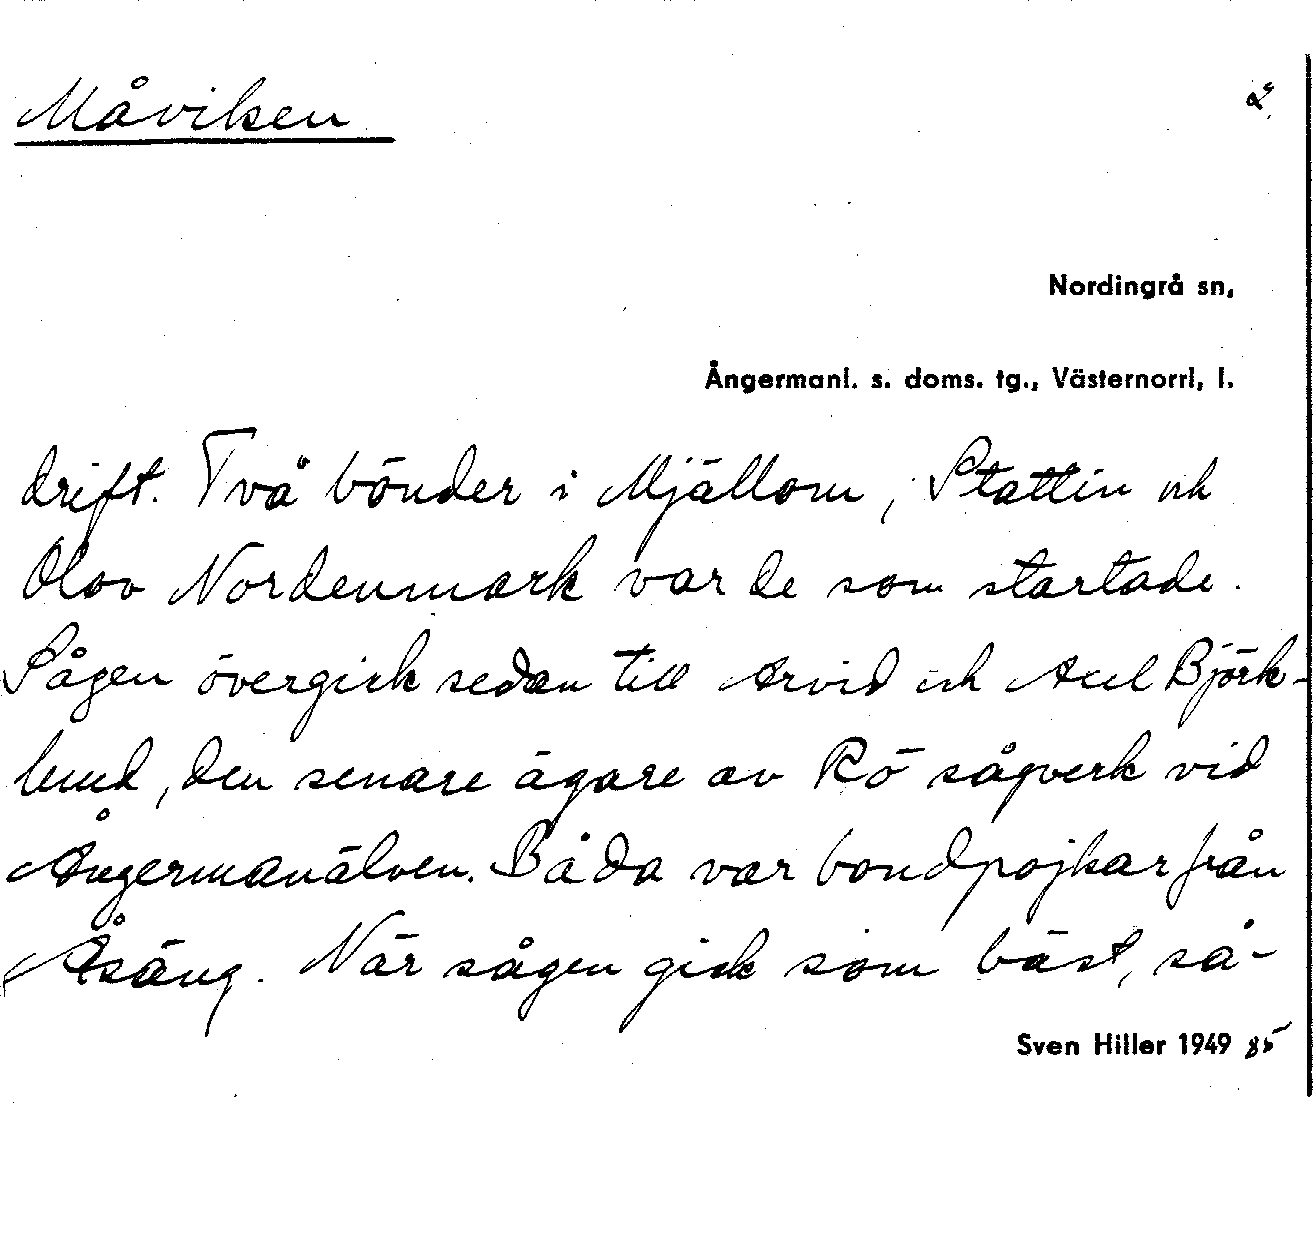 Måviken
2.
Nordingrå sn,
Ångermanl. s. doms. tg., Västernorrl, l.
drift. Två bönder i Mjällom, Stattin och
Olov Nordenmark var de som startade.
Sågen övergick sedan till Arvid och Axel Björk-
lund, den senare ägare av Rö sågverk vid
Ångermanälven. Båda var bondpojkar från
Åsäng. När sågen gick som bäst, så-
Sven Hiller 1949 85